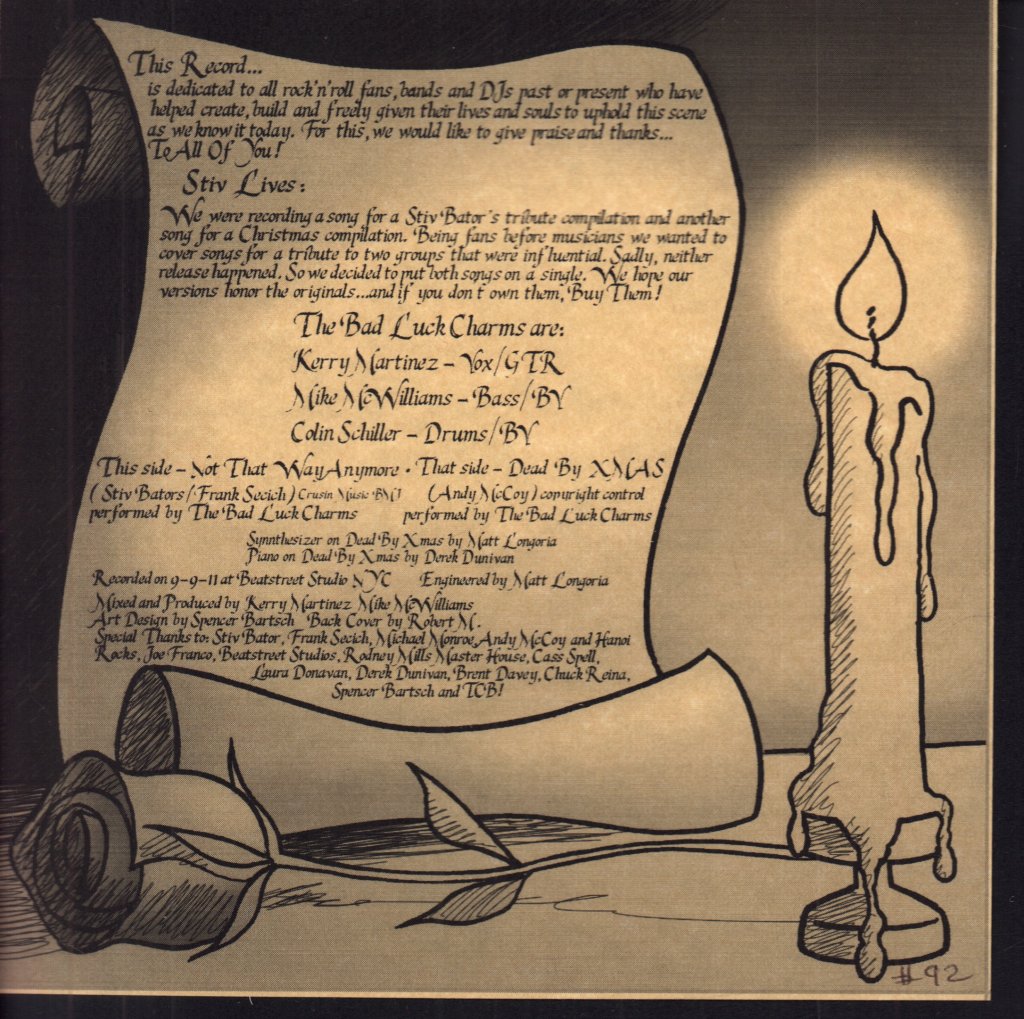 This Record...
is dedicated to all rock'n'roll fans, bands and DJs past or present who have
helped create, build and freely given their lives and souls to uphold this scene
as we know it today. For this, we would like to give praise and thanks...
To All Of You!
Stiv Lives:
We were recording a song for a Stiv Bator's tribute compilation and another
song for a Christmas compilation. Being fans before musicians we wanted to
cover songs for a tribute to two groups that were influential. Sadly, neither
release happened. So we decided to put both songs on a single. We hope our
versions honor the originals...and if you don't own them, Buy Them!
The Bad Luck Charms are:
Kerry Martinez - Vox/GTR
Mike McWilliams - Bass/BV
Colin Schiller - Drums/BV
This side - Not That Way Anymore · That side - Dead By XMAS
(Stiv Bators/Frank Secich) Crusin Music BMI (Andy McCoy) copyright control
performed by The Bad Luck Charms performed by The Bad Luck Charms
Synnthesizer on Dead By Xmas by Matt Longoria
Piano on Dead By Xmas by Derek Dunivan
Recorded on 9-9-11 at Beatstreet Studio NYC Engineered by Matt Longoria
Mixed and Produced by Kerry Martinez Mike McWilliams
Art Design by Spencer Bartsch Back Cover by Robert M.
Special Thanks to: Stiv Bator, Frank Secich, Michael Monroe, Andy McCoy and Hanoi
Rocks, Joe Franco, Beatstreet Studios, Rodney Mills Master House, Cass Spell,
Laura Donavan, Derek Dunivan, Brent Davey, Chuck Reina,
Spencer Bartsch and TCB!
#92